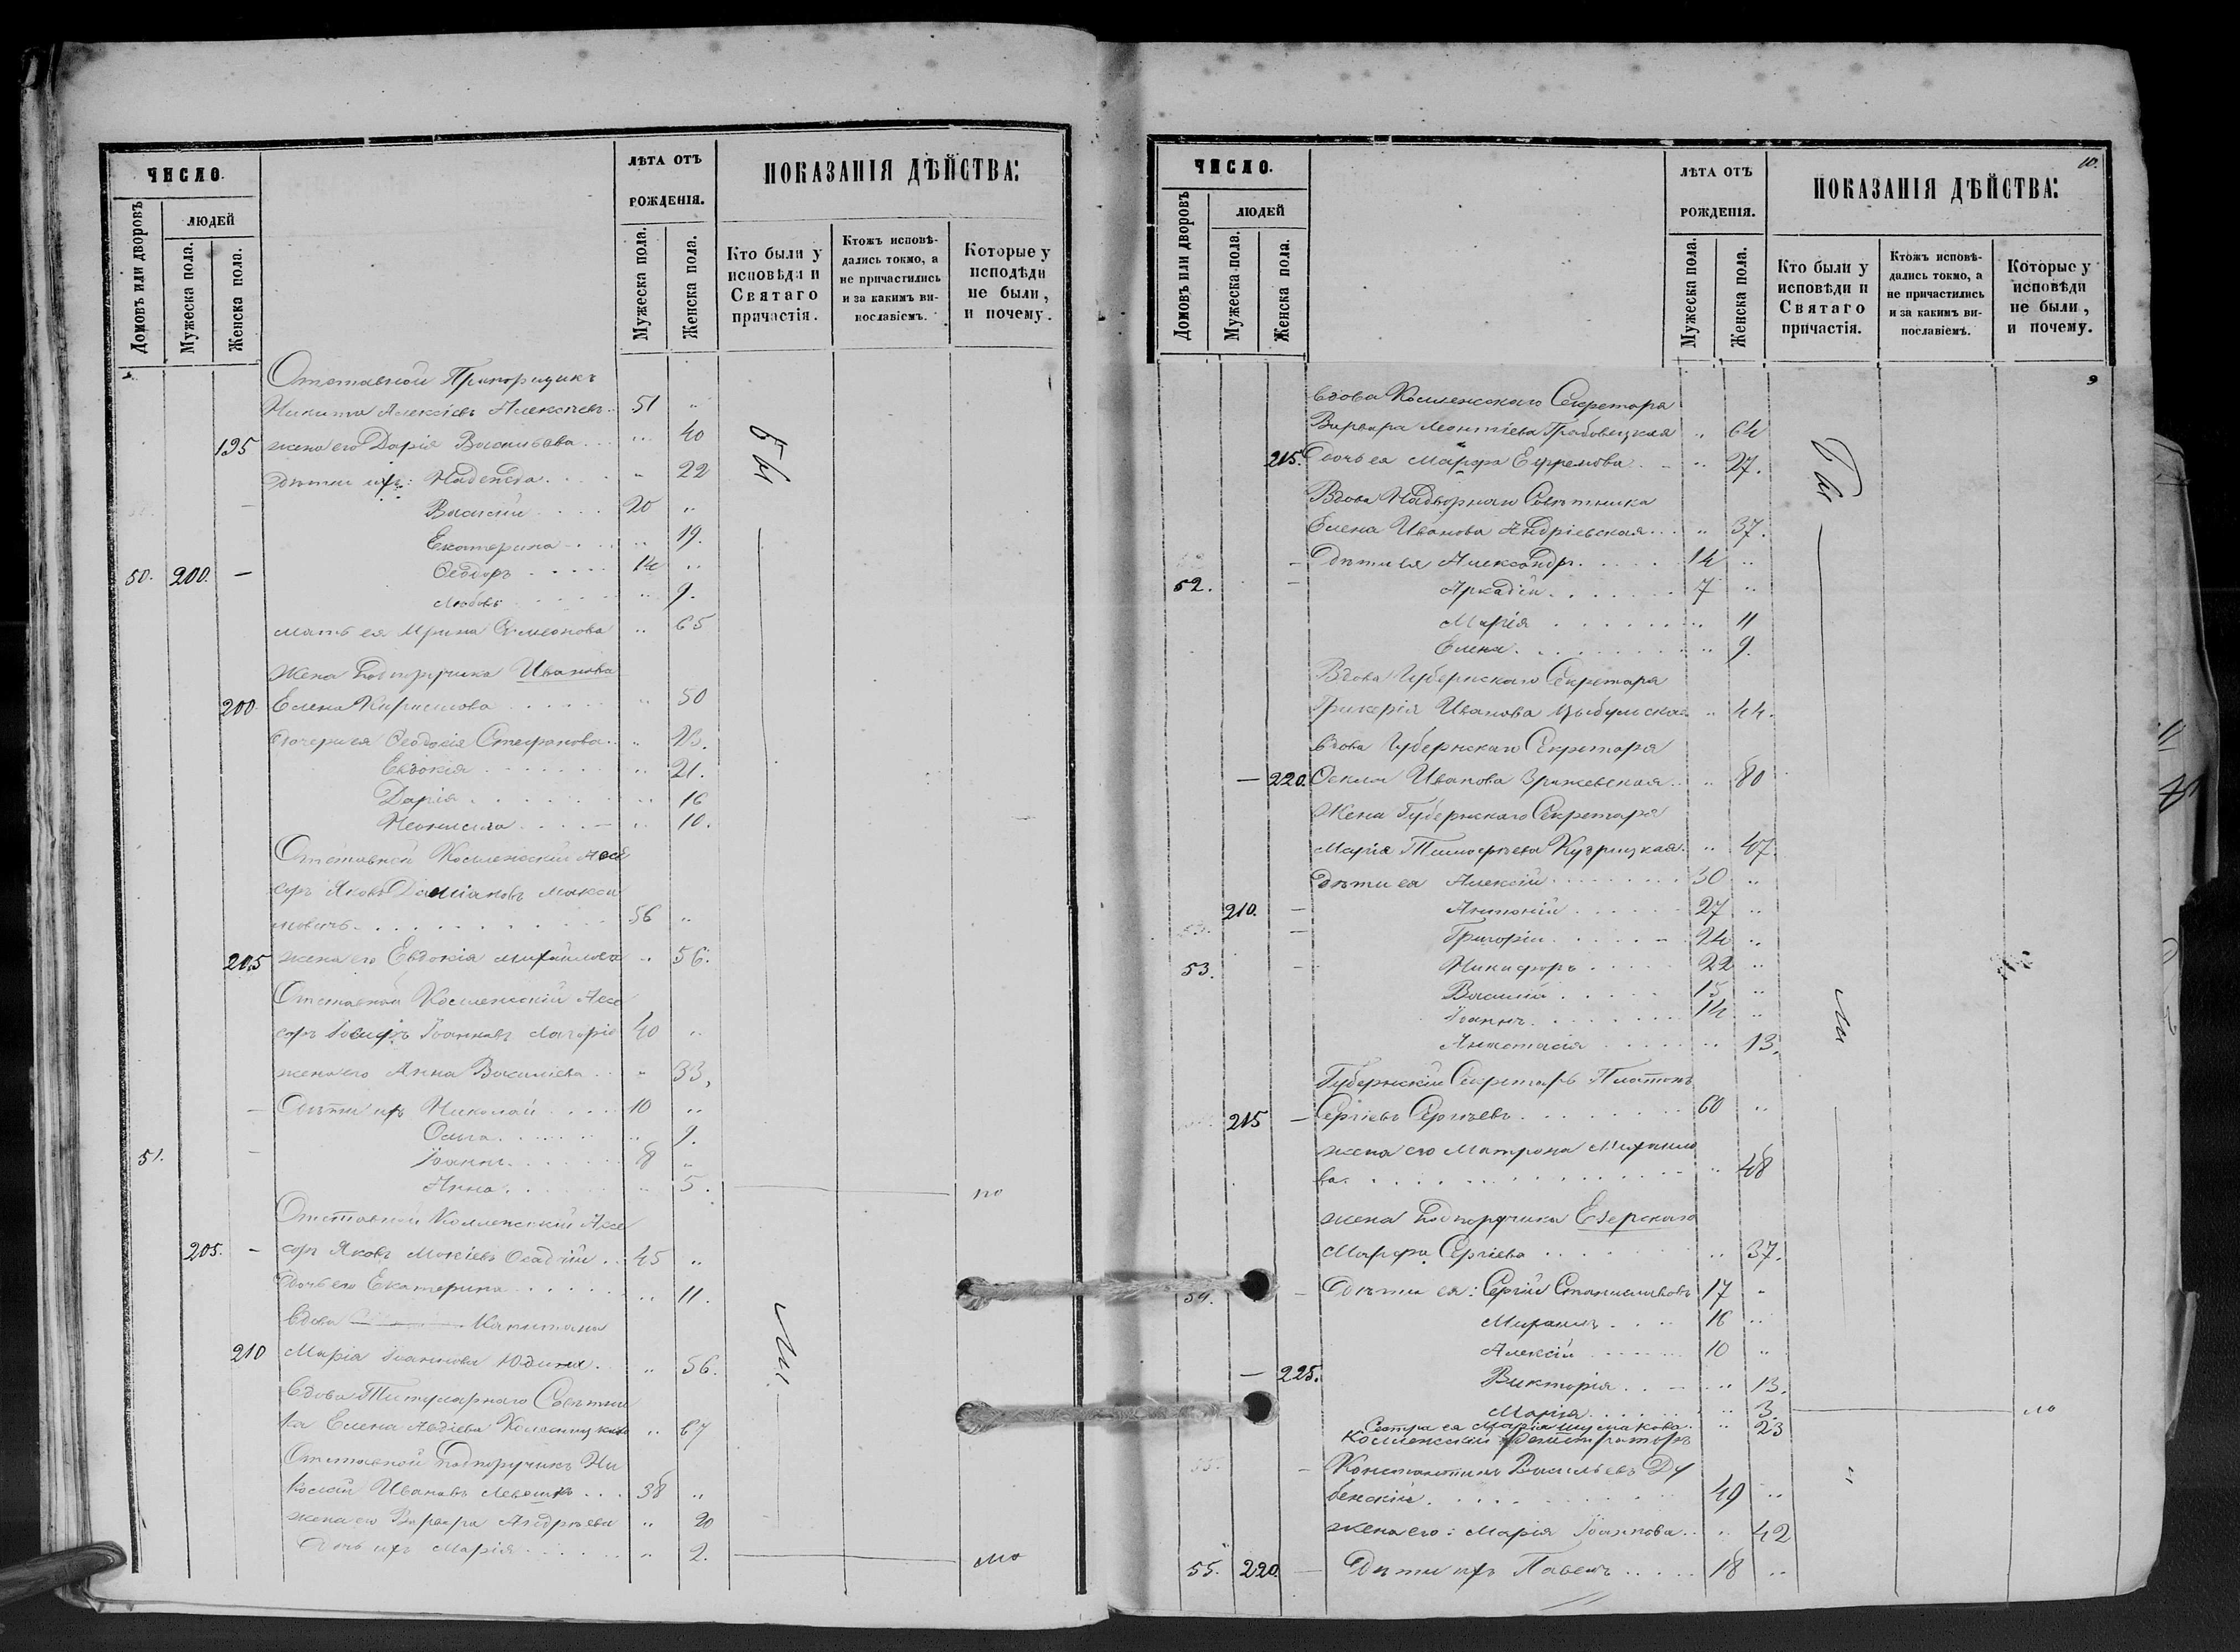 ЧИСЛО.
ЛѢТА ОТЪ
РОЖДЕНІЯ.
ПОКАЗАНІЯ ДѢЙСТВА:
Домовъ или дворовъ
ЛЮДЕЙ
Мужеска пола.
Женска пола.
Мужеска пола.
Женска пола.
Кто были у исповѣди и Святаго причастія.
Ктожъ исповѣ-дались токмо, а не причастились и за какимъ ви-нословіемъ.
Которые у исповѣди не были, и почему.
Отставной Прапорщикъ
Никита Алексіевъ Алексѣевъ 51 "
195 жена его Дарія Васильева " 40
Дѣти ихъ: Надежда " 22
— Василій 20 "
Екатерина " 19.
50. 200. — Ѳеодоръ 14 "
Любовь " 9.
мать ея Ирина Симеонова " 65
Жена Подпоручика Иванова
200. Елена Кирилова " 50
дочери ея Ѳеодосія Стефанова " 23.
Евдокія " 21.
Дарія " 16
Неонила " 10.
Отставной Коллежскій Ассе
соръ Яковъ Даміановъ Макси
мовичъ 56 "
205 жена его Евдокія Михайлова " 56.
Отставной Коллежскій Ассе
соръ Іосифъ Іоанновъ Лагоріо 40 "
жена его Анна Василіева " 33,
— Дѣти ихъ Николай 10 "
Ольга " 9.
51. — Іоаннъ 8 "
Анна " 5. мо
Отставной Коллежскій Ассе
205. — соръ Яковъ Мокіевъ Осадчій 45 "
Дочь его Екатерина " 11.
Вдова Капитана
210 Марія Іоаннова Юдина " 56.
Вдова Титулярнаго Совѣтни
ка Елена Авдіева " 67
Отставной Подпоручикъ Ни
колай Ивановъ 38 "
жена его Варвара Андреева " 20
Дочь ихъ Марія " 2. мо
Бы
ли
ЧИСЛО.
ЛѢТА ОТЪ
РОЖДЕНІЯ.
ПОКАЗАНІЯ ДѢЙСТВА:
10.
Домовъ или дворовъ
ЛЮДЕЙ
Мужеска пола.
Женска пола.
Мужеска пола.
Женска пола.
Кто были у исповѣди и Святаго причастія.
Ктожъ исповѣ-дались токмо, а не причастились и за какимъ ви-нословіемъ.
Которые у исповѣди не были, и почему.
9
Вдова Коллежскаго Секретаря
Варвара Леонтіева Грабовецкая " 64
215. Дочь ея Марфа Ефремова " 27.
Вдова Надворнаго Совѣтника
Елена Иванова Андріевская " 37.
— Дѣти ея Александръ 14 "
52. — Аркадій 7 "
Марія " 11
Елена " 9.
Вдова Губернскаго Секретаря
Гликерія Иванова Цыбульская " 44.
Вдова Губернскаго Секретаря
— 220. Ѳекла Иванова Зражевская " 80
Жена Губернскаго Секретаря
Марія Тимофѣева " 47.
Дѣти ея Алексій 30 "
210. — Антоній 27 "
— Григорій 24 "
53. — Никифоръ 22 "
Василій 15 "
Іоаннъ 14 "
Анастасія " 13.
Губернскій Секретарь Платонъ
215 — Сергіевъ Сергѣевъ 60 "
жена его Матрона Михаило
ва " 48
жена Подпоручика Езерскаго
Марфа Сергіева " 37.
54. — Дѣти ея: Сергій Станиславовъ 17 "
Михаилъ 16 "
Алексій 10 "
— 225. Викторія " 13.
Марія " 3. мо
Сестра ея Марія Шумакова " 23
Коллежскій Регистраторъ
— Константинъ Васильевъ Ду
бенскій 49 "
жена его: Марія Іоаннова " 42
55. 220. — Дѣти ихъ Павелъ 18 "
Бы
ли